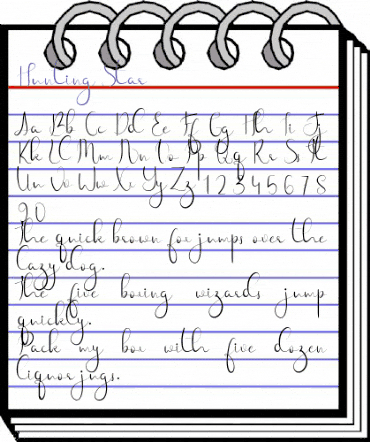 Hunting Star
Aa Bb Cc Dd Ee Ff Gg Hh Ii Jj
Kk Ll Mm Nn Oo Pp Qq Rr Ss Tt
Uu Vv Ww Xx Yy Zz 1 2 3 4 5 6 7 8
9 0
The quick brown fox jumps over the
lazy dog.
The five boxing wizards jump
quickly.
Pack my box with five dozen
liquor jugs.